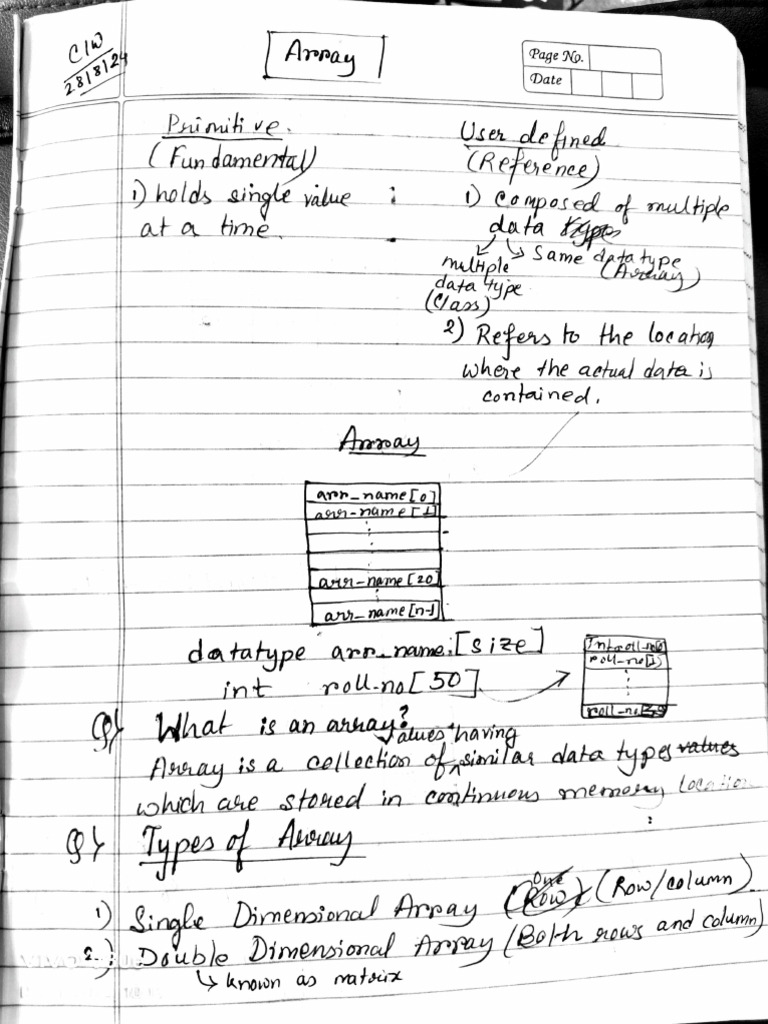 C/W
28/8/24
Array
Page No.
Date
Primitive.
(Fundamental)
1) holds single value
at a time.
User defined
(Reference)
1) composed of multiple
data types
Same data type
(Array)
multiple
data type
(Class)
2) Refers to the location
where the actual data is
contained.
Array
arr_name[0]
arr-name[1]
arr-name[20]
arr_name[n-1]
datatype arr_name[size]
int roll-no[50]
roll-no[1]
Q) What is an array?
values having
Array is a collection of similar data types values
which are stored in continuous memory location
Q) Types of Array
1) Single Dimensional Array (One Row) (Row/column)
2) Double Dimensional Array (Both rows and column)
↳ known as matrix